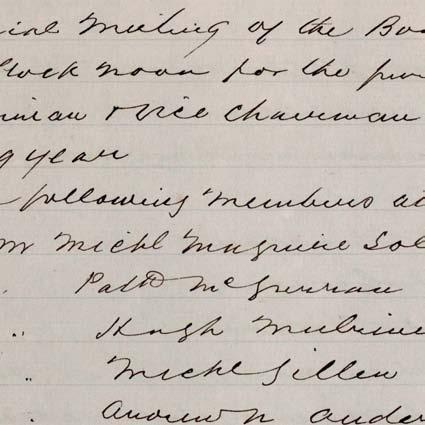 cial Meeting of the Boa
Clock noon for the pur
irman & Vice Chairman
g year
following Members at
Mr Michl Maguire Sol
" Pattk McGurran
" Hugh
" Michl Gillen
" Andrew ander